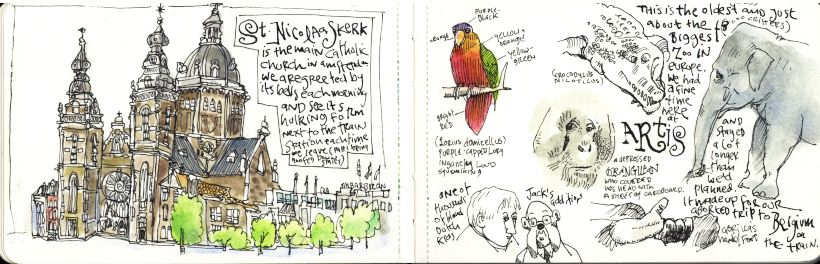 St. Nicolaaskerk
is the main catholic
church in amsterdam
we are greeted by
its bells each morning
and see its
hulking form
next to the train
station each time
we leave (
Purple-
Black
orange
yellow
orange
yellow-
green
Bright
Red
(Lorius domicellus)
Purple-capped Lory
Insanely Loud
one of
thousands
of blond
Dutch
kids
Jack's addition
(Crocodylus
niloticus)
This is the oldest and just
about the
Biggest
Zoo in
Europe.
We had
a fine
time
here
at
ARTIS
and
stayed
a lot
longer
than
we'd
planned.
It made up for our
aborted trip to Belgium
on
the train.
a depressed
orangutan
who covered
his head with
a sheet of cardboard.
gorillas